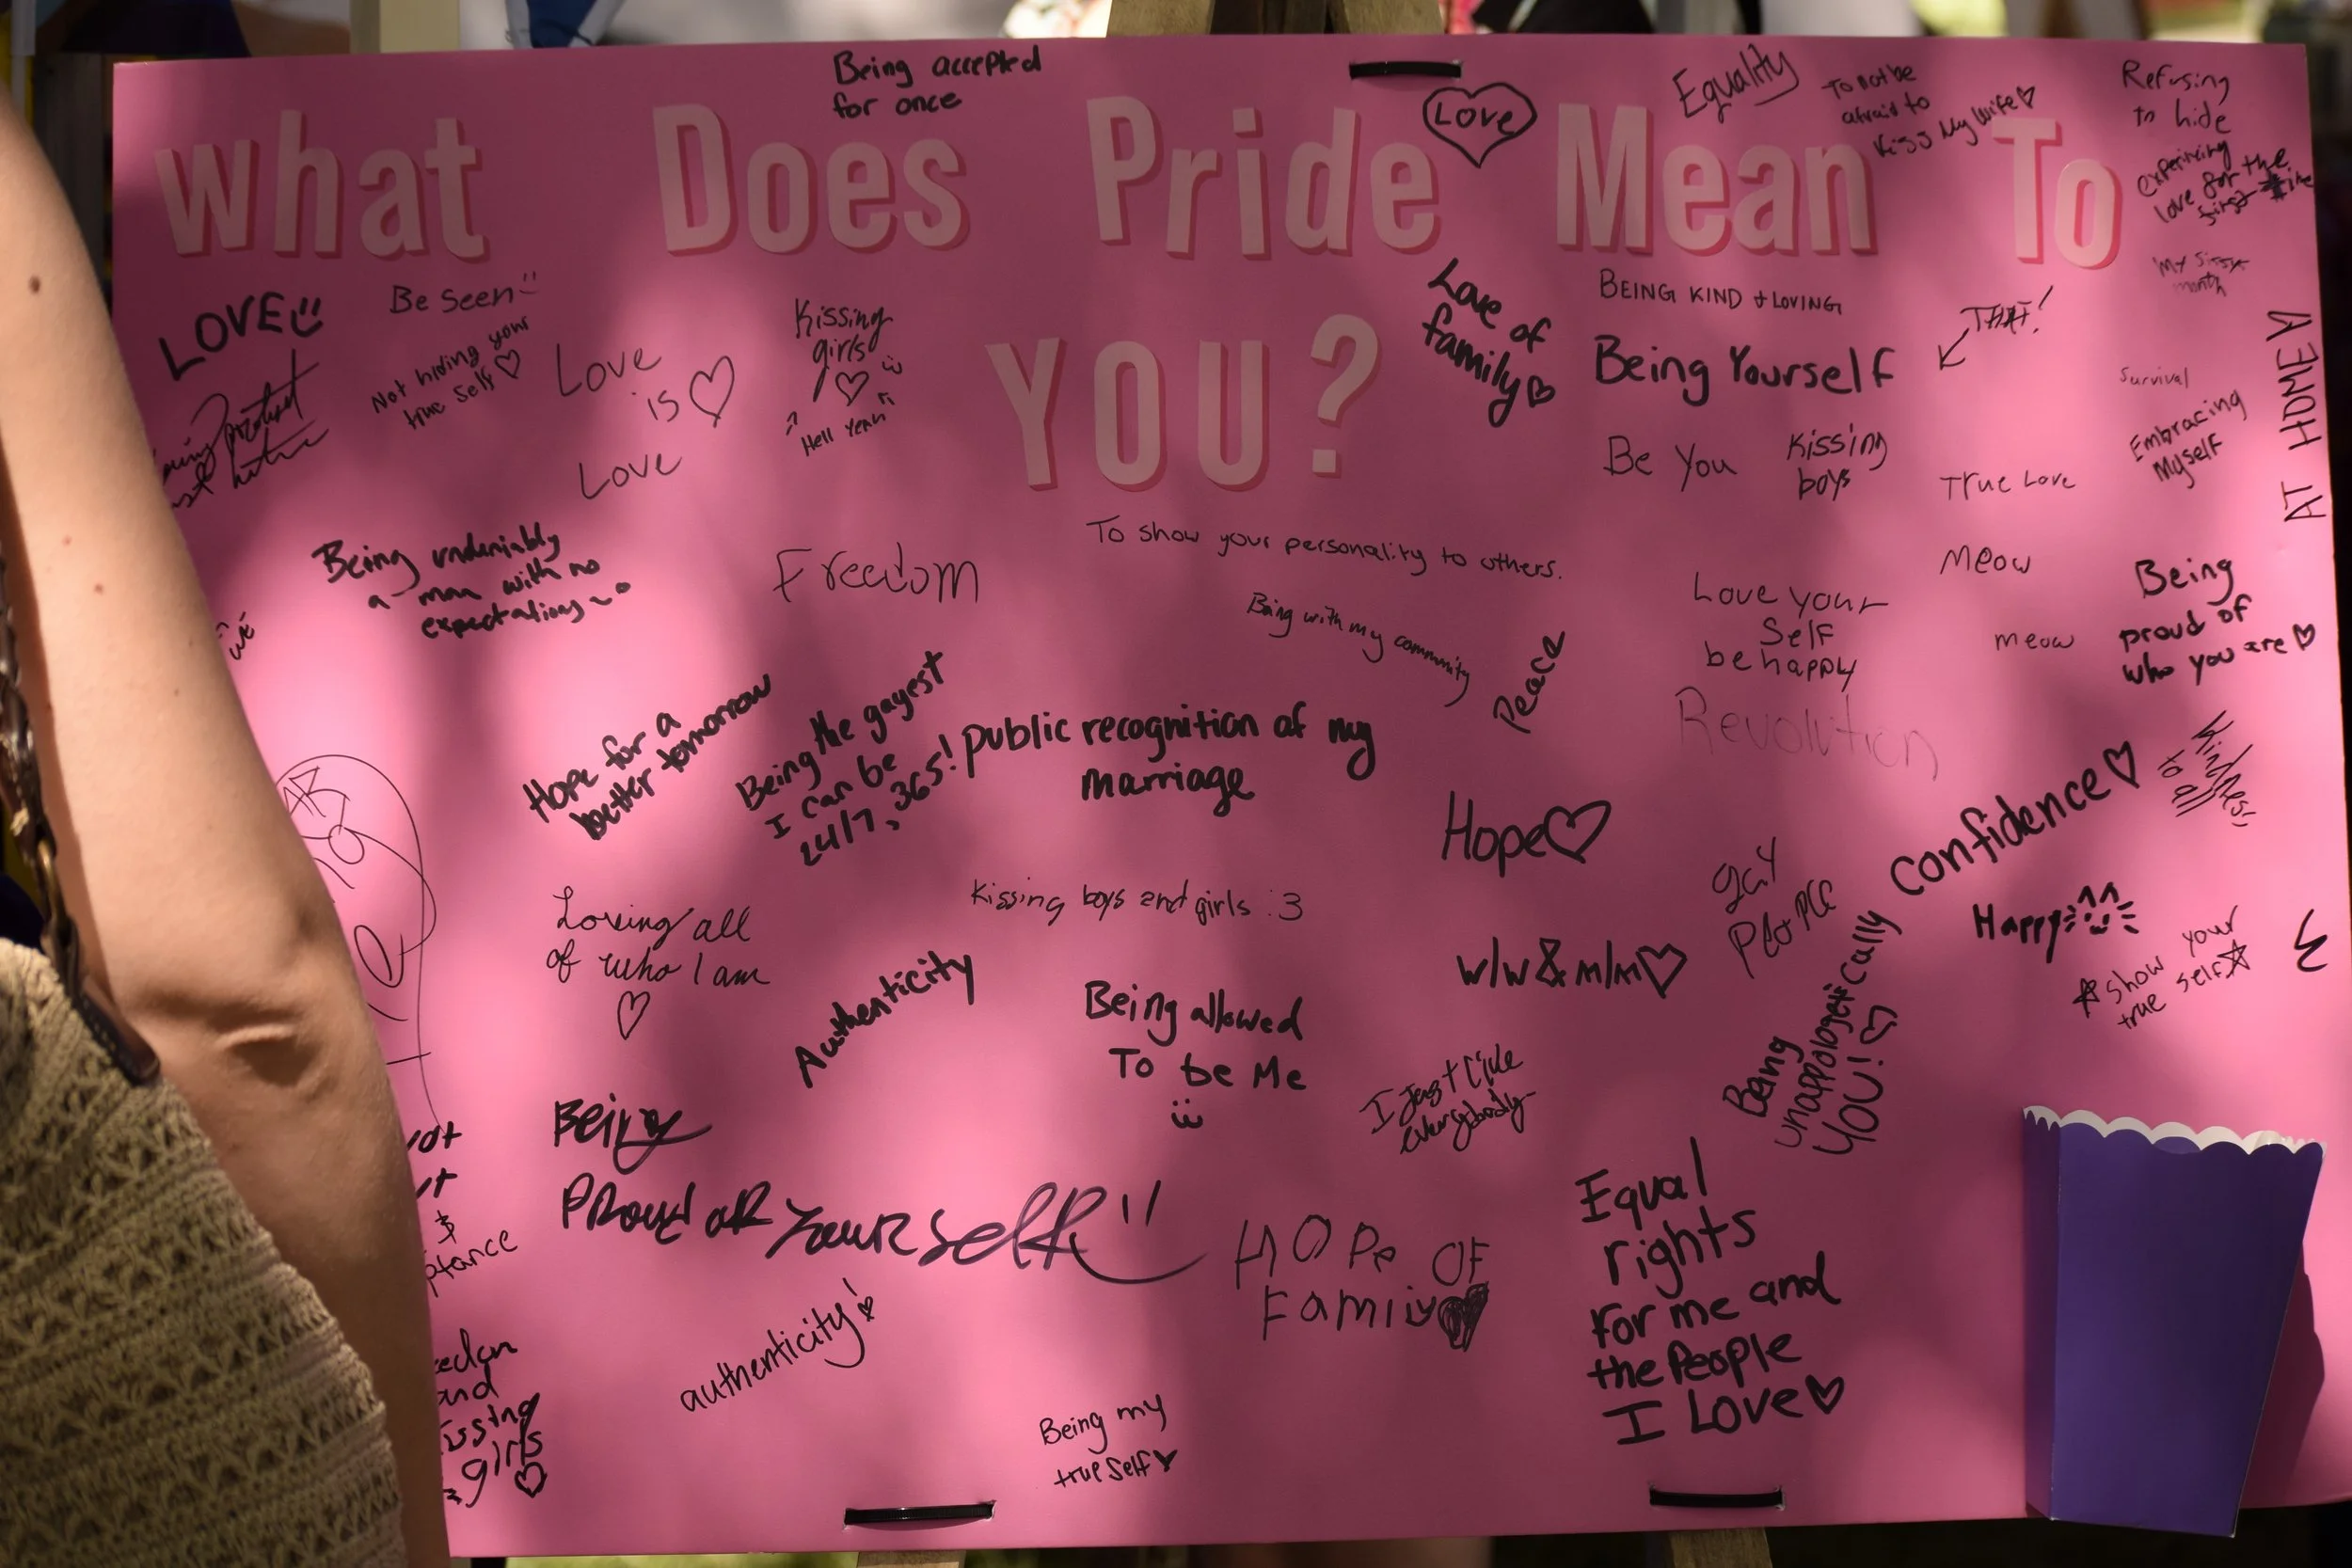 Being accepted
for once
What Does Pride Mean To
YOU?
Love
Equality
To not be
afraid to
Kiss My Wife
Refusing
to hide
love for the
first time
My sissy
month
LOVE
Be Seen
Not hiding your
true self
Love
is
Love
Kissing
girls
Hell Yeah
Love of
family
BEING KIND + LOVING
Being Yourself
THAT!
Survival
Embracing
Myself
AT HOME
Be You
Kissing
boys
True Love
Being undeniably
a man with no
expectations
Freedom
To show your personality to others.
Being with my community
Peace
Love your
Self
be happy
Meow
meow
Being
proud of
who you are
Revolution
Hope for a
better tomorrow
Being the gayest
I can be
24/7, 365!
public recognition of my
marriage
Hope
Confidence
Kindness
to all
Loving all
of who I am
Kissing boys and girls :3
gay
PeoPle
Happy
Authenticity
Being allowed
To be Me
w/w & m/m
show your
true self
Being
unappologetically
YOU!
I just like
everybody
Being
Proud of Yourself
HOPe OF
Family
Equal
rights
For me and
the People
I Love
authenticity!
Being my
true self
and
girls